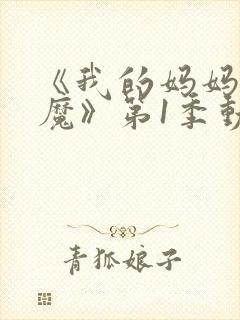 《我的妈妈
魔》第1季動
青狐娘子